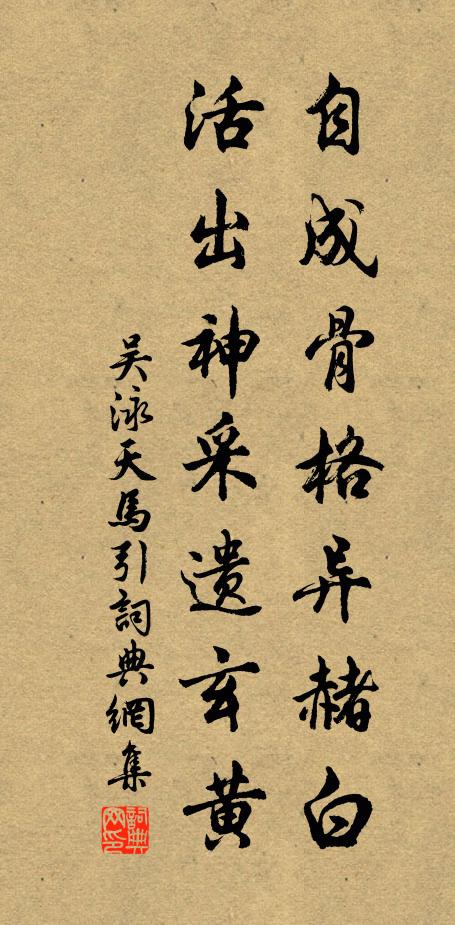 自成骨格异赭白
活出神采遗玄黄
吴泳天馬引詞典網集
詞典网印